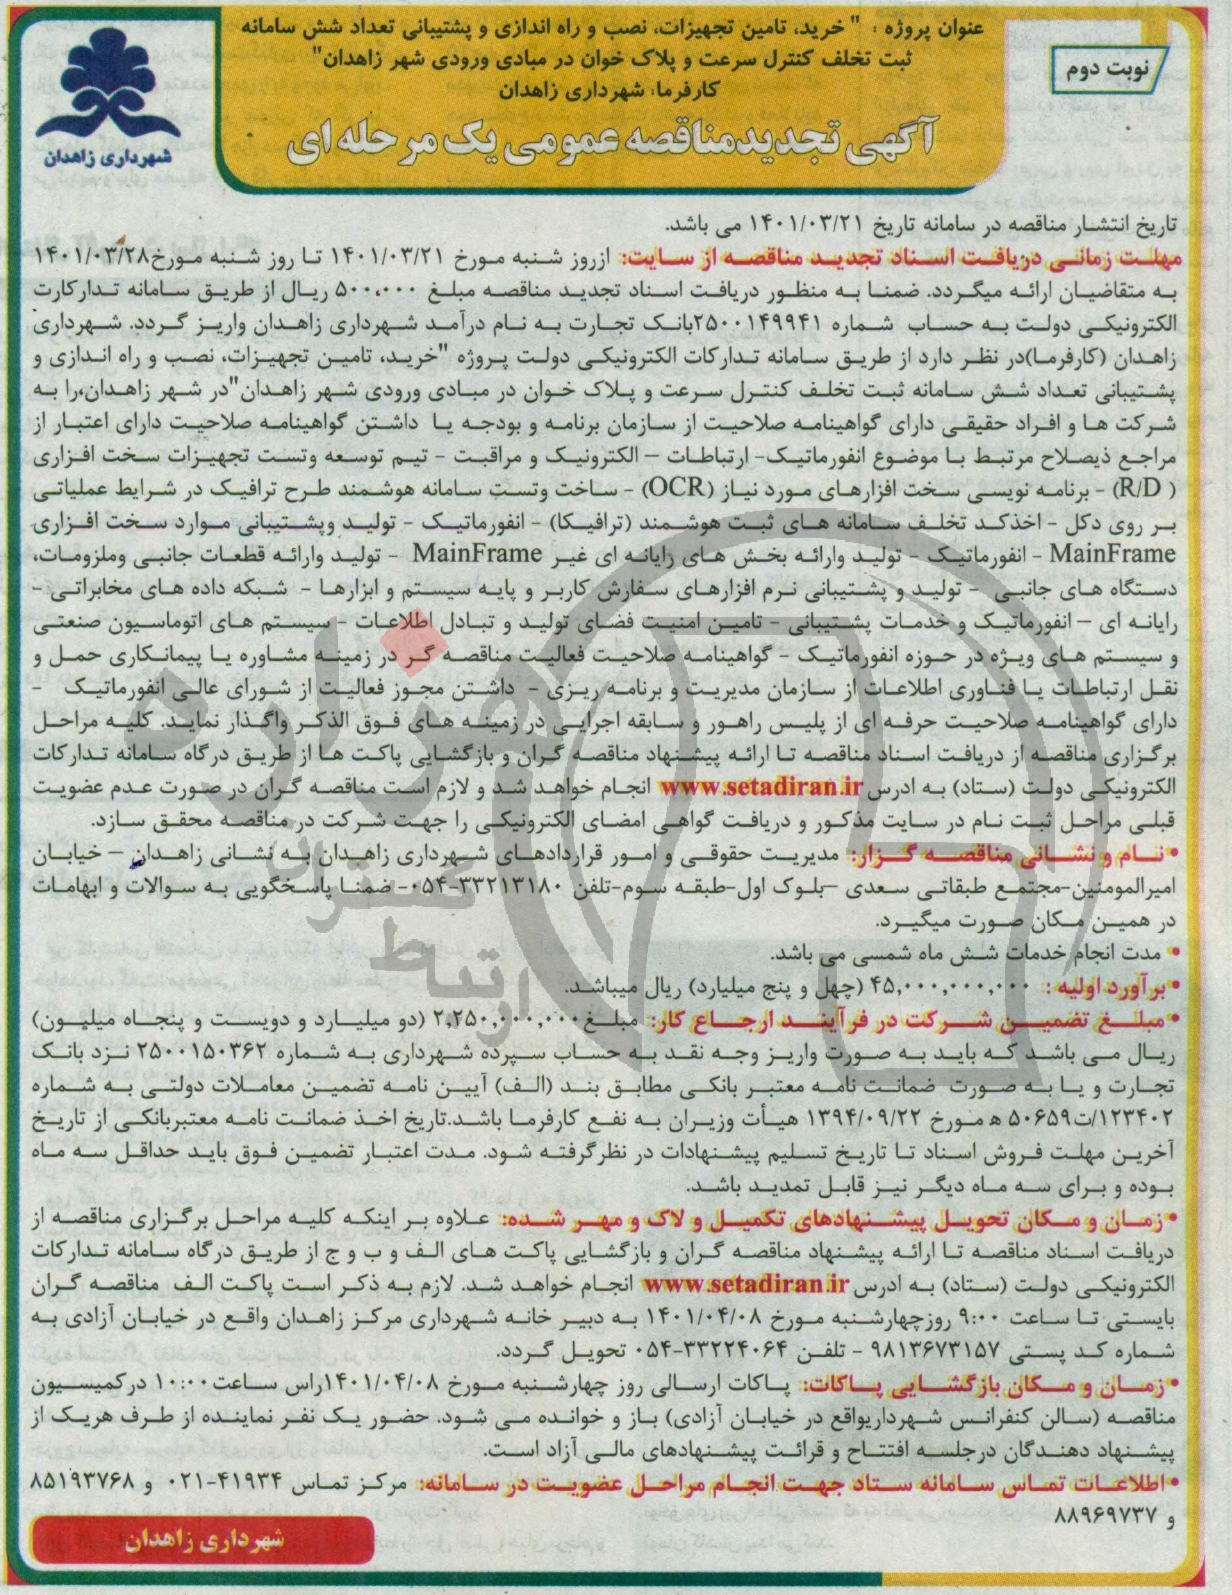 عنوان پروژه : " خرید، تامین تجهیزات، نصب و راه اندازی و پشتیبانی تعداد شش سامانه
ثبت تخلف کنترل سرعت و پلاک خوان در مبادی ورودی شهر زاهدان"
کارفرما: شهرداری زاهدان
آگهی تجدیدمناقصه عمومی یک مرحله ای
نوبت دوم
شهرداری زاهدان
تاریخ انتشار مناقصه در سامانه تاریخ ۱۴۰۱/۰۳/۲۱ می باشد.
مهلت زمانی دریافت اسناد تجدید مناقصه از سایت: ازروز شنبه مورخ ۱۴۰۱/۰۳/۲۱ تا روز شنبه مورخ۱۴۰۱/۰۳/۲۸
به متقاضیان ارائه میگردد. ضمنا به منظور دریافت اسناد تجدید مناقصه مبلغ ۵۰۰،۰۰۰ ریال از طریق سامانه تدارکارت
الکترونیکی دولت به حساب شماره ۲۵۰۰۱۴۹۹۴۱بانک تجارت به نام درآمد شهرداری زاهدان واریز گردد. شهرداری
زاهدان (کارفرما)در نظر دارد از طریق سامانه تدارکات الکترونیکی دولت پروژه "خرید، تامین تجهیزات، نصب و راه اندازی و
پشتیبانی تعداد شش سامانه ثبت تخلف کنترل سرعت و پلاک خوان در مبادی ورودی شهر زاهدان"در شهر زاهدان،را به
شرکت ها و افراد حقیقی دارای گواهینامه صلاحیت از سازمان برنامه و بودجه یا داشتن گواهینامه صلاحیت دارای اعتبار از
مراجع ذیصلاح مرتبط با موضوع انفورماتیک- ارتباطات – الکترونیک و مراقبت - تیم توسعه وتست تجهیزات سخت افزاری
( R/D) - برنامه نویسی سخت افزارهای مورد نیاز (OCR) - ساخت وتست سامانه هوشمند طرح ترافیک در شرایط عملیاتی
بر روی دکل - اخذکد تخلف سامانه های ثبت هوشمند (ترافیکا) - انفورماتیک - تولید وپشتیبانی موارد سخت افزاری
MainFrame - انفورماتیک - تولید وارائه بخش های رایانه ای غیر MainFrame - تولید وارائه قطعات جانبی وملزومات،
دستگاه های جانبی - تولید و پشتیبانی نرم افزارهای سفارش کاربر و پایه سیستم و ابزارها - شبکه داده های مخابراتی -
رایانه ای – انفورماتیک و خدمات پشتیبانی - تامین امنیت فضای تولید و تبادل اطلاعات - سیستم های اتوماسیون صنعتی
و سیستم های ویژه در حوزه انفورماتیک - گواهینامه صلاحیت فعالیت مناقصه گر در زمینه مشاوره یا پیمانکاری حمل و
نقل ارتباطات یا فناوری اطلاعات از سازمان مدیریت و برنامه ریزی - داشتن مجوز فعالیت از شورای عالی انفورماتیک -
دارای گواهینامه صلاحیت حرفه ای از پلیس راهور و سابقه اجرایی در زمینه های فوق الذکر واگذار نماید. کلیه مراحل
برگزاری مناقصه از دریافت اسناد مناقصه تا ارائه پیشنهاد مناقصه گران و بازگشایی پاکت ها از طریق درگاه سامانه تدارکات
الکترونیکی دولت (ستاد) به ادرس www.setadiran.ir انجام خواهد شد و لازم است مناقصه گران در صورت عدم عضویت
قبلی مراحل ثبت نام در سایت مذکور و دریافت گواهی امضای الکترونیکی را جهت شرکت در مناقصه محقق سازد.
•نام و نشانی مناقصه گزار: مدیریت حقوقی و امور قراردادهای شهرداری زاهدان به نشانی زاهدان – خیابان
امیرالمومنین-مجتمع طبقاتی سعدی –بلوک اول-طبقه سوم-تلفن ۳۳۲۱۳۱۸۰-۰۵۴- ضمنا پاسخگویی به سوالات و ابهامات
در همین مکان صورت میگیرد.
• مدت انجام خدمات شش ماه شمسی می باشد.
•برآورد اولیه : ۴۵,۰۰۰,۰۰۰,۰۰۰ (چهل و پنج میلیارد) ریال میباشد.
•مبلغ تضمین شرکت در فرآیند ارجاع کار: مبلغ۲,۲۵۰,۰۰۰,۰۰۰ (دو میلیارد و دویست و پنجاه میلیون)
ریال می باشد که باید به صورت واریز وجه نقد به حساب سپرده شهرداری به شماره ۲۵۰۰۱۵۰۳۶۲ نزد بانک
تجارت و یا به صورت ضمانت نامه معتبر بانکی مطابق بند (الف) آیین نامه تضمین معاملات دولتی به شماره
۱۲۳۴۰۲/ت۵۰۶۵۹ ه مورخ ۱۳۹۴/۰۹/۲۲ هیأت وزیران به نفع کارفرما باشد.تاریخ اخذ ضمانت نامه معتبربانکی از تاریخ
آخرین مهلت فروش اسناد تا تاریخ تسلیم پیشنهادات در نظرگرفته شود. مدت اعتبار تضمین فوق باید حداقل سه ماه
بوده و برای سه ماه دیگر نیز قابل تمدید باشد.
•زمان و مکان تحویل پیشنهادهای تکمیل و لاک و مهر شده: علاوه بر اینکه کلیه مراحل برگزاری مناقصه از
دریافت اسناد مناقصه تا ارائه پیشنهاد مناقصه گران و بازگشایی پاکت های الف و ب و ج از طریق درگاه سامانه تدارکات
الکترونیکی دولت (ستاد) به ادرس www.setadiran.ir انجام خواهد شد. لازم به ذکر است پاکت الف مناقصه گران
بایستی تا ساعت ۹:۰۰ روزچهارشنبه مورخ ۱۴۰۱/۰۴/۰۸ به دبیر خانه شهرداری مرکز زاهدان واقع در خیابان آزادی به
شماره کد پستی ۹۸۱۳۶۷۳۱۵۷ - تلفن ۳۳۲۲۴۰۶۴-۰۵۴ تحویل گردد.
•زمان و مکان بازگشایی پاکات: پاکات ارسالی روز چهارشنبه مورخ ۱۴۰۱/۰۴/۰۸راس ساعت۱۰:۰۰ درکمیسیون
مناقصه (سالن کنفرانس شهرداریواقع در خیابان آزادی) باز و خوانده می شود، حضور یک نفر نماینده از طرف هریک از
پیشنهاد دهندگان درجلسه افتتاح و قرائت پیشنهادهای مالی آزاد است.
•اطلاعات تماس سامانه ستاد جهت انجام مراحل عضویت در سامانه: مرکز تماس ۴۱۹۳۴-۰۲۱ و ۸۵۱۹۳۷۶۸
و ۸۸۹۶۹۷۳۷
شهرداری زاهدان
هزاره
گستران
ارتباط